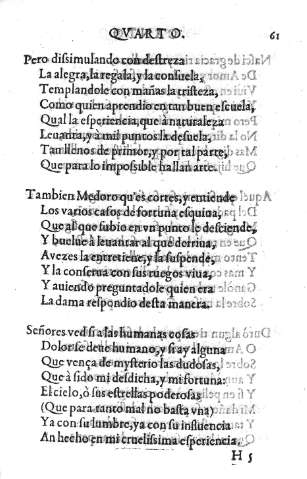 QVARTO. 61
Pero dissimulando con destreza
La alegra, la regala, y la consuela,
Templandole con mañas la tristeza,
Como quien aprendio en tan buen escuela,
Qual la esperiencia, que à naturaleza
Leuanta, y à mil puntos la desuela,
Tan llenos de primor, y por tal parte,
Que para lo impossible hallan arte.
Tambien Medoro qu'es cortes, y entiende
Los varios casos de fortuna esquiua,
Que al que subio en vn punto le desciende,
Y buelue à leuantar al que derriua,
A vezes la entretiene, y la suspende,
Y la conserua con sus ruegos viua,
Y auiendo preguntadole quien era
La dama respondio desta manera.
Señores ved si a las humanas cosas
Dolor se deue humano, y si ay alguna
Que vença de mysterio las dudosas,
Que à sido mi desdicha, y mi fortuna:
El cielo, ò sus estrellas poderosas
(Que para tanto mal no basta vna)
Ya con su lumbre, ya con su influencia
An hecho en mi cruelissima esperiencia,
H 5